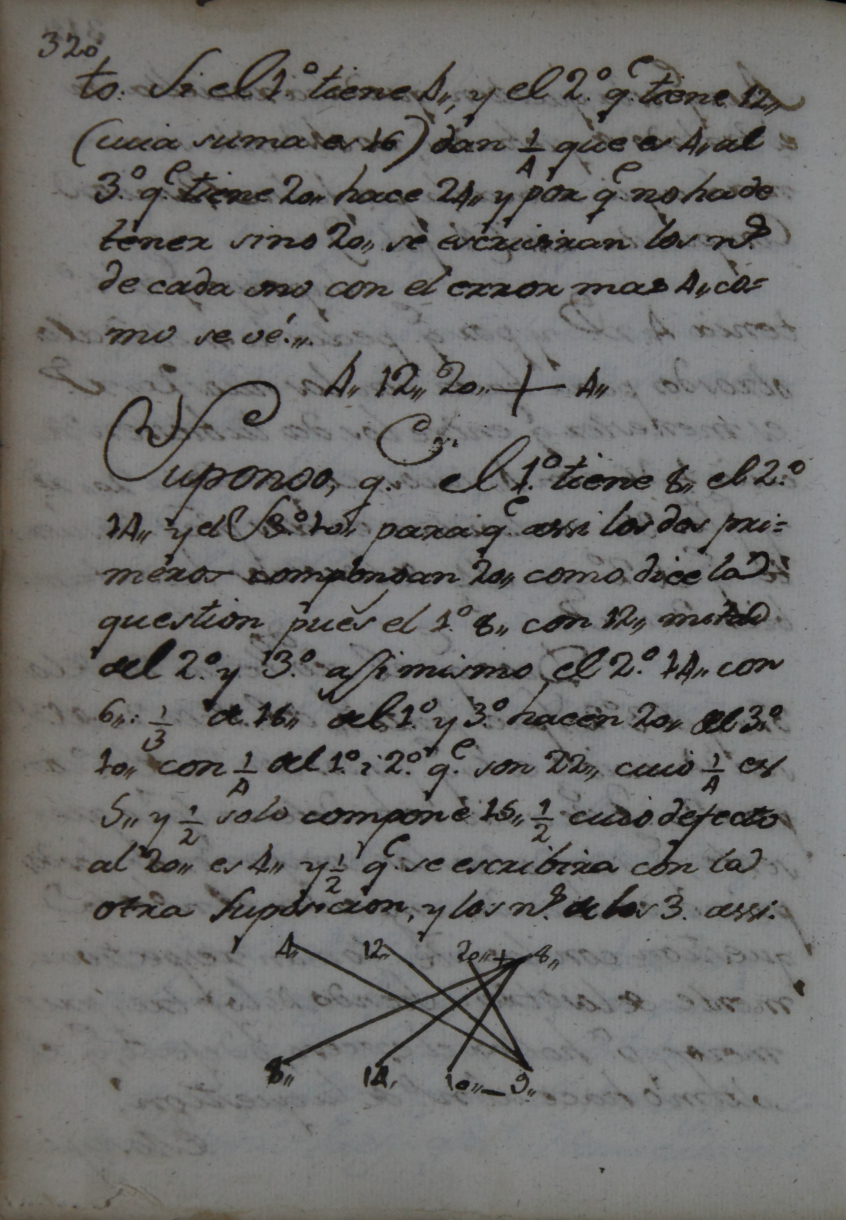 320
to. Si el 1º tiene 4,, y el 2º. qᵉ tiene 12,,
(cuia suma es 16) dan 1/4 que es 4,, al
3.º qᵉ tiene 20,, hace 24,, y por qᵉ no ha de
tener sino 20,, se escriviran los nˢ
de cada uno con el error mas 4,, co=
mo se vé.,,
4,, 12,, 20,, + 4,,
Supongo, q. el 1.º tiene 8,, el 2.º
14,, y el 3º 10,, para qᵉ assi los dos pri=
meros compongan 20,, como dice la
question pues el 1.º 8,, con 12,, mitad
del 2.º y 3.º assi mismo el 2.º 14,, con
6,, 1/3 de 18,, del 1.º y 3.º hacen 20,, el 3.º
10,, con 1/4 del 1.º i 2.º qᵉ son 22,, cuio 1/4 es
5,, y 1/2 solo compone 15,, 1/2 cuio defecto
al 20,, es 4,, y 1/2 qᵉ se escribira con la
otra Suposicion, y los nˢ de los 3. assi.
4,, 12,, 20,, + 8,,
8,, 14,, 10,, – 9,,